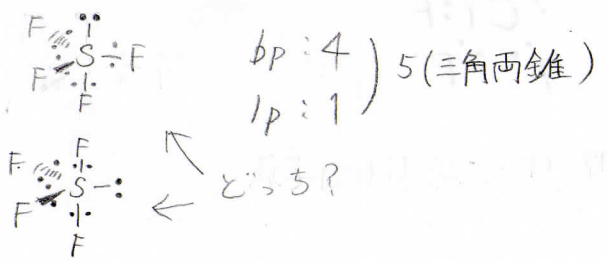 F
F S F
F
bp : 4
lp : 1
) 5 (三角両錐)
F
F S
F
F
どっち?